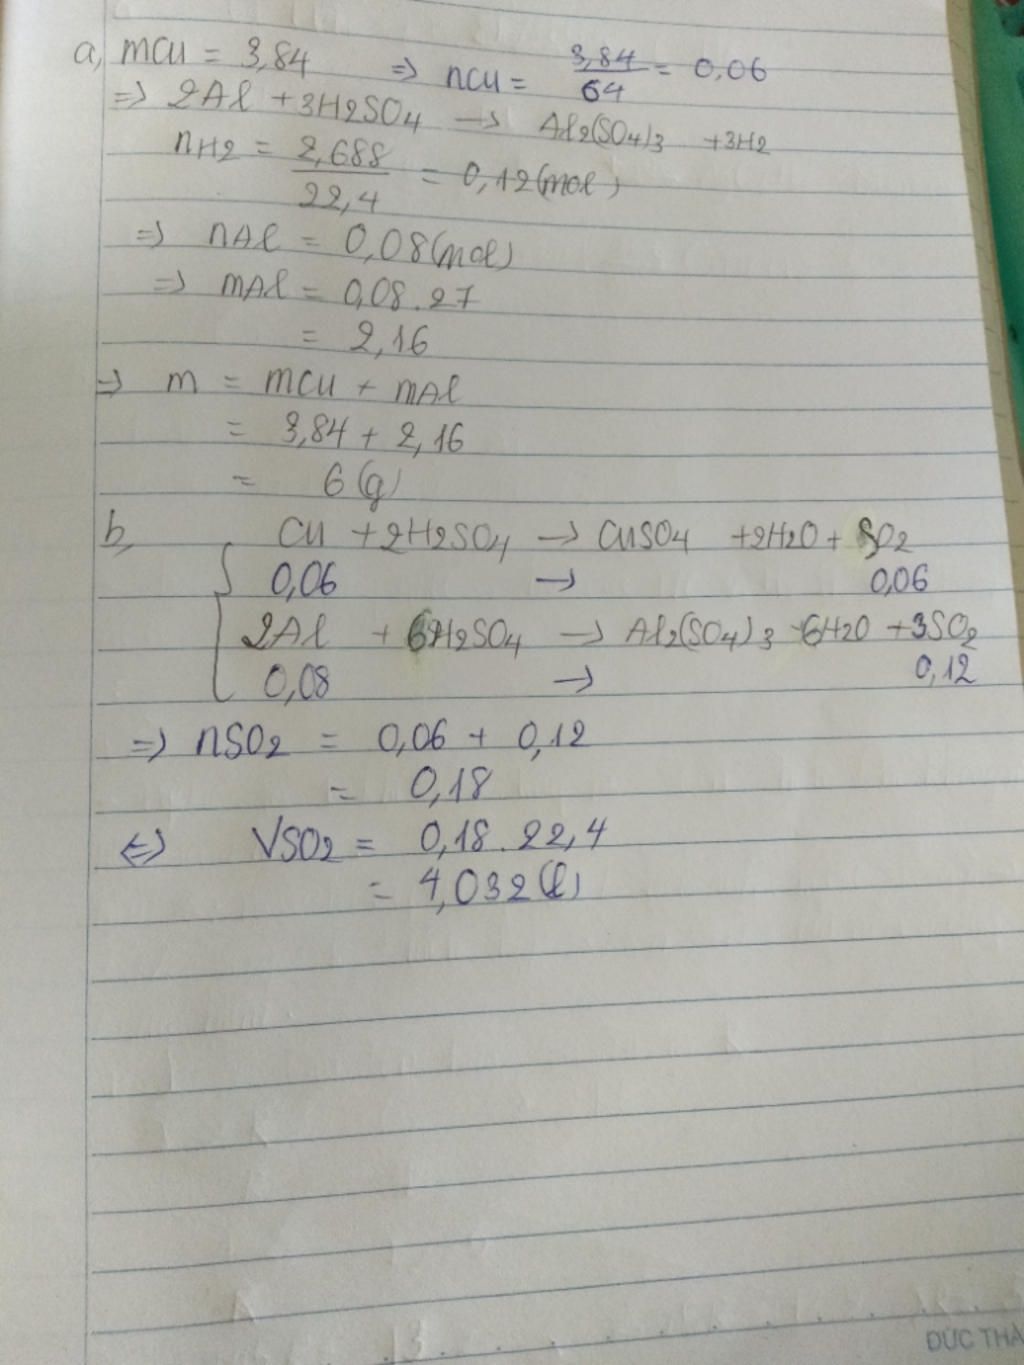 a, mCu = 3,84 => nCu = 3,84/64 = 0,06
=> 2Al + 3H2SO4 -> Al2(SO4)3 + 3H2
nH2 = 2,688/22,4 = 0,12 (mol)
=> nAl = 0,08 (mol)
=> mAl = 0,08 . 27
= 2,16
=> m = mCu + mAl
= 3,84 + 2,16
= 6 (g)
b, Cu + 2H2SO4 -> CuSO4 + 2H2O + SO2
0,06 -> 0,06
2Al + 6H2SO4 -> Al2(SO4)3 + 6H2O + 3SO2
0,08 -> 0,12
=> nSO2 = 0,06 + 0,12
= 0,18
<=> VSO2 = 0,18 . 22,4
= 4,032 (l)
ĐỨC THÀ